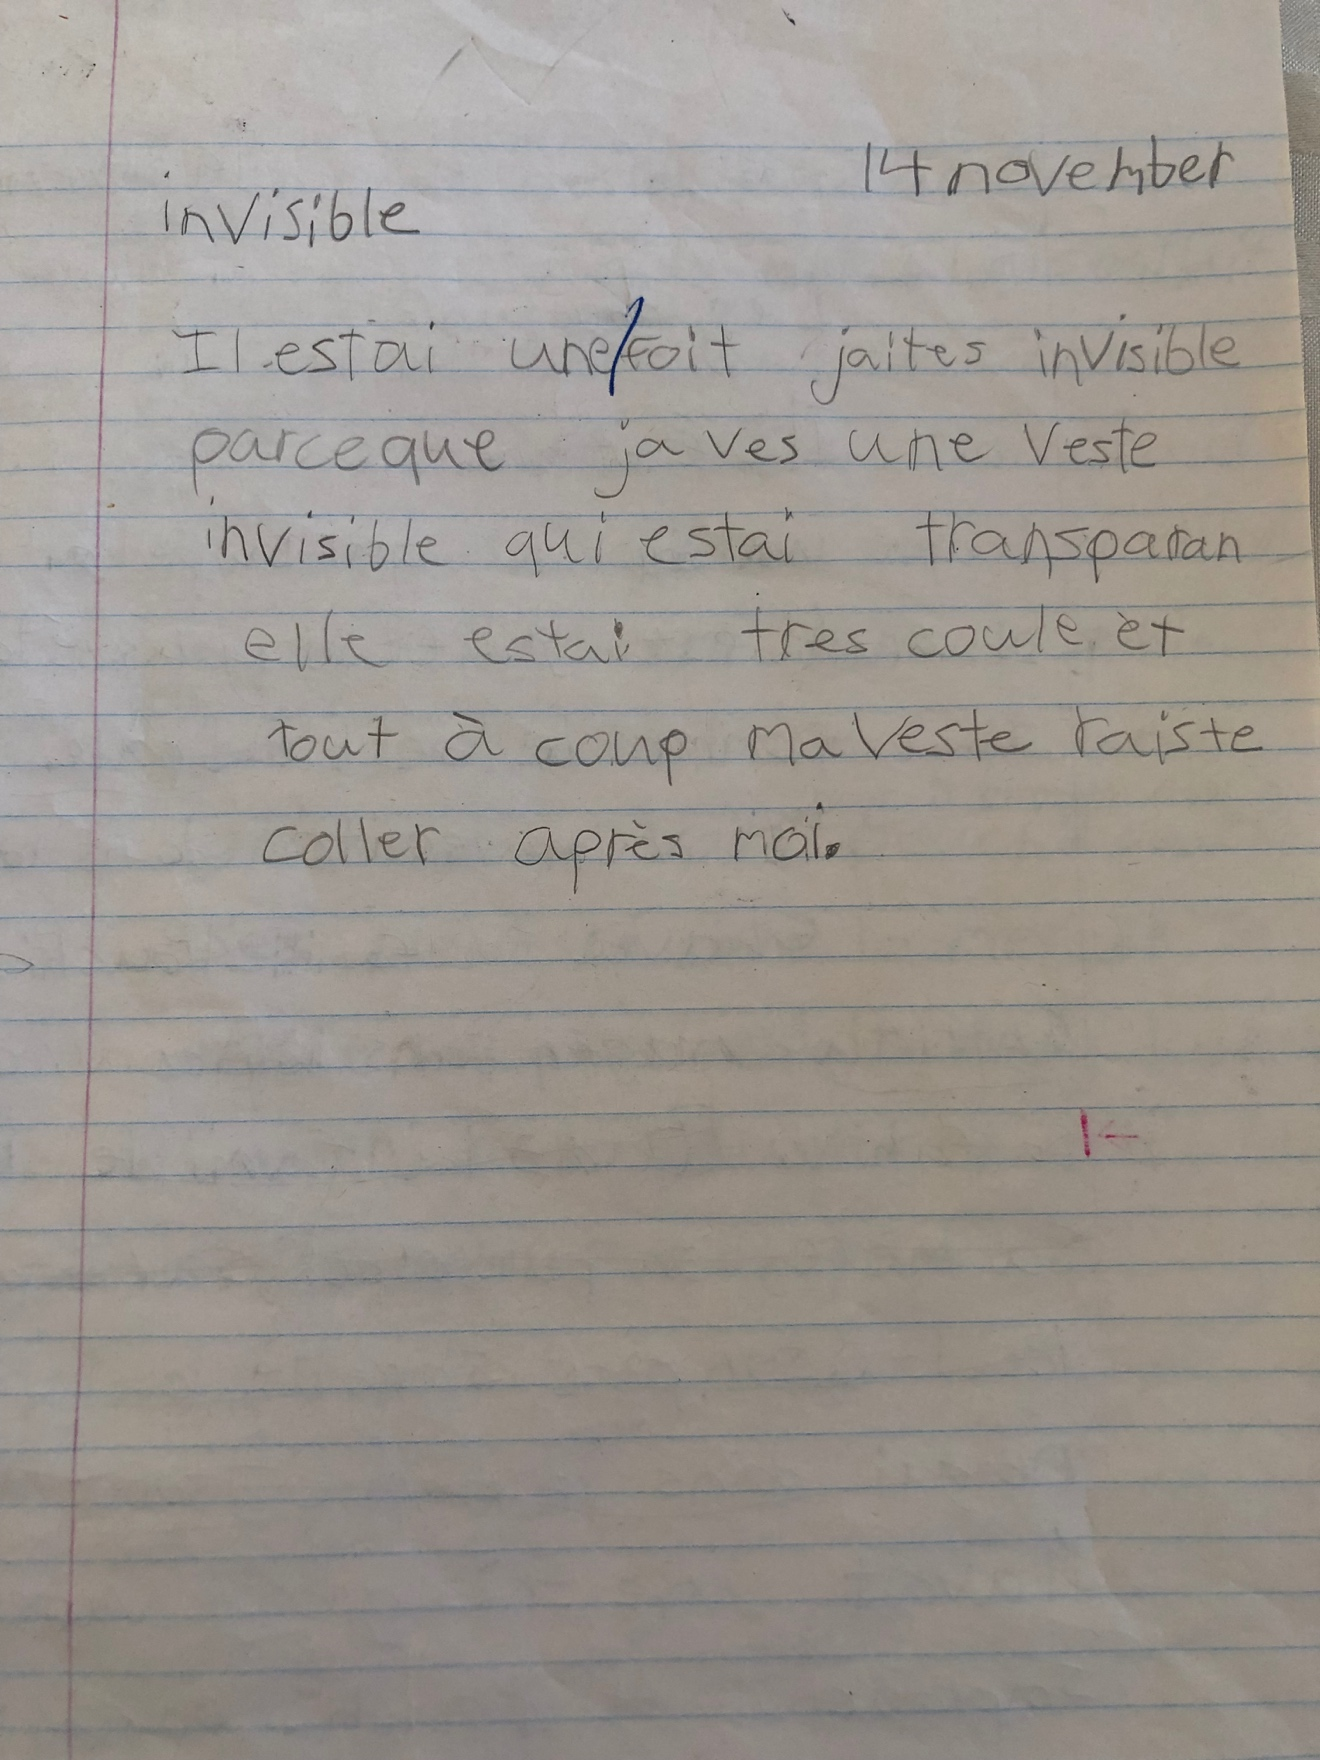 14 november
invisible
Il estai une/foit jaites invisible
parceque javes une veste
invisible qui estai transparan
elle estai tres coule et
tout à coup ma veste raiste
coller après moi.